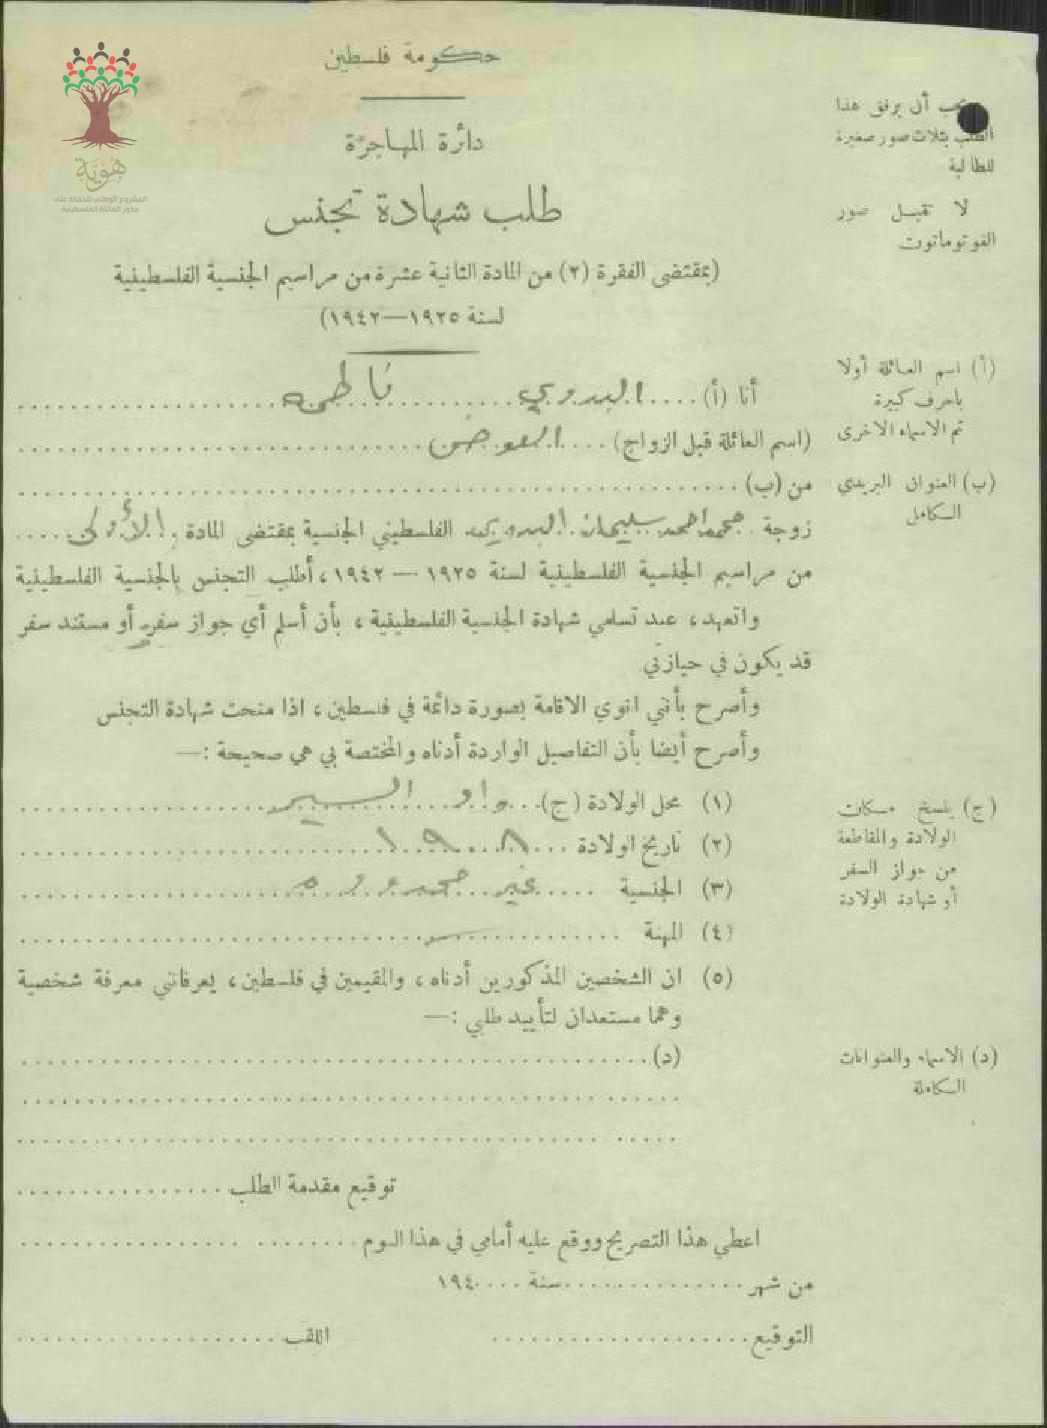 هوية
المشروع الوطني للحفاظ على
جذور العائلة الفلسطينية
حكومة فلسطين
دائرة المهاجرة
طلب شهادة تجنس
(بمقتضى الفقرة (٢) من المادة الثانية عشرة من مراسيم الجنسية الفلسطينية
لسنة ١٩٢٥—١٩٤٢)
يجب أن يرفق هذا
الطلب بثلاث صور صغيرة
للطالبة
لا تقبل صور
الفوتوماتون
أنا (أ) .... البدوي ........ فاطمه ........
(اسم العائلة قبل الزواج) .... العوض ........
من (ب) ........
زوجة . محمد احمد سليمان . البدوي . الفلسطيني الجنسية بمقتضى المادة . الأولى ....
من مراسيم الجنسية الفلسطينية لسنة ١٩٢٥ — ١٩٤٢، أطلب التجنس بالجنسية الفلسطينية
واتعهد، عند تسلمي شهادة الجنسية الفلسطينية، بأن أسلم أي جواز سفر أو مستند سفر
قد يكون في حيازتي
وأصرح بأنني انوي الاقامة بصورة دائمة في فلسطين، اذا منحت شهادة التجنس
وأصرح أيضا بأن التفاصيل الواردة أدناه والمختصة بي هي صحيحة :—
(١) محل الولادة (ج) .... واد السير ........
(٢) تاريخ اولادة .... ١٩٠٨ ........
(٣) الجنسية .... غير محدوده ........
(٤) المهنة ........
(٥) ان الشخصين المذكورين أدناه، والمقيمين في فلسطين، يعرفانني معرفة شخصية
وهما مستعدان لتأييد طلبي :—
(د) ........
توقيع مقدمة الطلب ........
اعطي هذا التصريح ووقع عليه أمامي في هذا اليوم ........
من شهر ........ سنة .... ١٩٤٠
التوقيع ........ اللقب ........
(أ) اسم العائلة أولا
باحرف كبيرة
ثم الاسماء الاخرى
(ب) العنوان البريدي
الكامل
(ج) ينسخ مكان
الولادة والمقاطعة
من جواز السفر
أو شهادة الولادة
(د) الاسماء والعنوانات
الكاملة